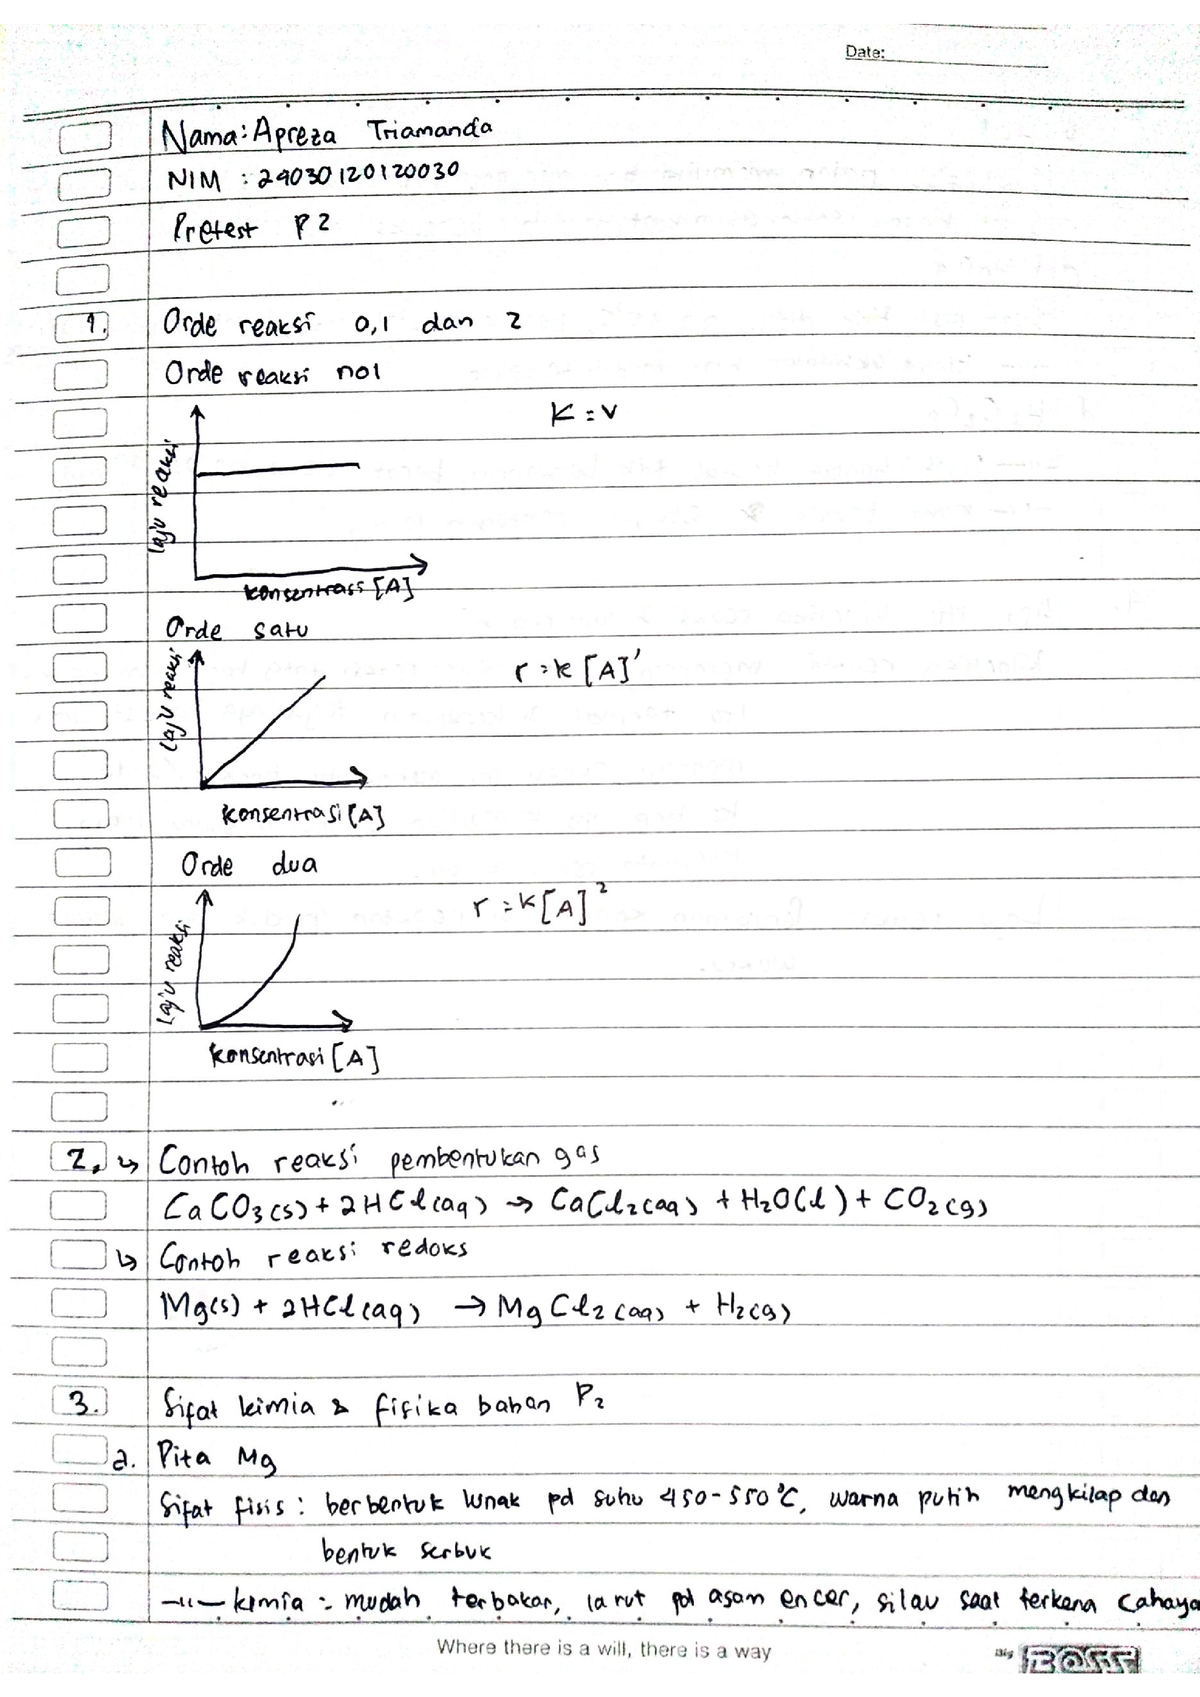 Date:
Nama: Apreza Triamanda
NIM : 24030120120030
Pretest P2
1. Orde reaksi 0,1 dan 2
Orde reaksi nol
K = V
laju reaksi
konsentrasi [A]
Orde satu
r = k [A]¹
laju reaksi
konsentrasi [A]
Orde dua
r = k [A]²
laju reaksi
konsentrasi [A]
2. ↳ Contoh reaksi pembentukan gas
CaCO₃(s) + 2HCl(aq) → CaCl₂(aq) + H₂O(l) + CO₂(g)
↳ Contoh reaksi redoks
Mg(s) + 2HCl(aq) → MgCl₂(aq) + H₂(g)
3. Sifat kimia & fisika bahan P₂
a. Pita Mg
Sifat fisis : berbentuk lunak pd suhu 450-550°C, warna putih mengkilap dan
bentuk serbuk
—"— kimia : mudah terbakar, larut pd asam encer, silau saat terkena cahaya
Where there is a will, there is a way
Big BOSS